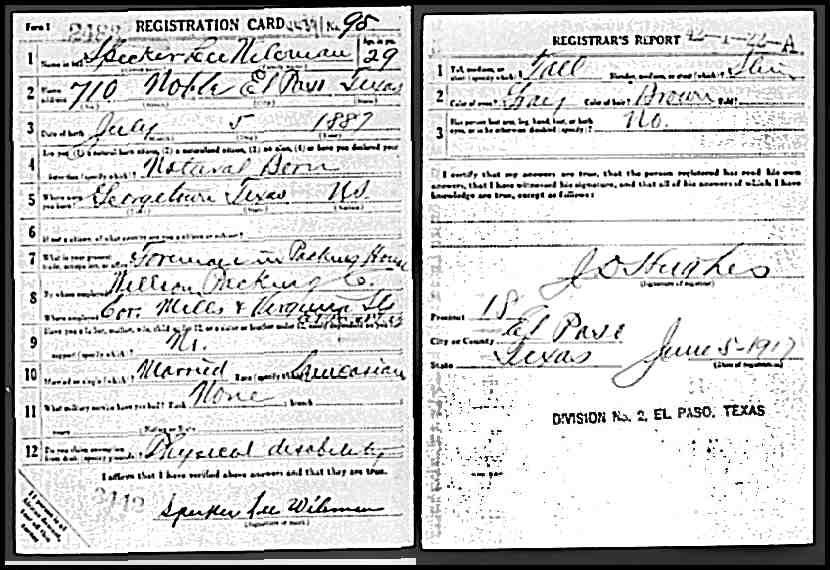 Form 1 REGISTRATION CARD No. 95
1 Name in full Lee Age, in yrs. 29
2 Home address 710 Noble El Paso Texas
3 Date of birth July 5 1887
4 Are you (1) a natural born citizen, (2) a naturalized citizen, (3) an alien, (4) or have you declared your
intention (specify which)? Born
5 Where were you born? Georgetown Texas U.S.
6 If not a citizen, of what country are you a citizen or subject?
7 What is your present trade, occupation, or office? in Packing House
8 By whom employed? Packing Co.
Where employed? Cor. Mills & Virginia Sts
9 Have you a father, mother, wife, child under 12, or a sister or brother under 12, solely dependent on you for
support (specify which)? No.
10 Married or single (which)? Married Race (specify which)? Caucasian
11 What military service have you had? Rank None branch
years Nation or State
12 Do you claim exemption from draft (specify grounds)? Physical disability
I affirm that I have verified above answers and that they are true.
Lee
(Signature or mark)
REGISTRAR'S REPORT 42-1-22-A
1 Tall, medium, or short (specify which)? Tall Slender, medium, or stout (which)? Slim
2 Color of eyes? Gray Color of hair? Brown Bald?
3 Has person lost arm, leg, hand, foot, or both eyes, or is he otherwise disabled (specify)? No.
I certify that my answers are true, that the person registered has read his own
answers, that I have witnessed his signature, and that all of his answers of which I have
knowledge are true, except as follows:
J D Hughes
(Signature of registrar)
Precinct 18
City or County El Paso
State Texas June 5-1917
(Date of registration)
DIVISION No. 2, EL PASO, TEXAS